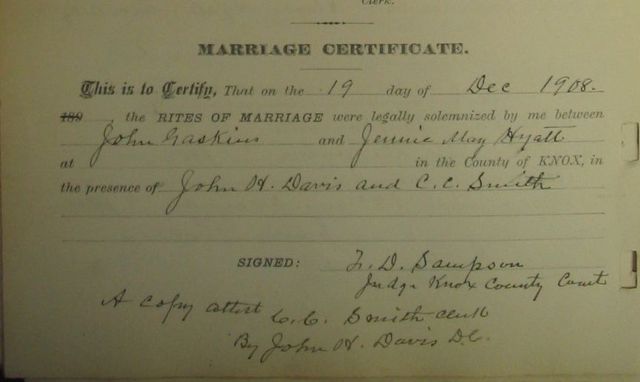 Clerk.
MARRIAGE CERTIFICATE.
This is to Certify, That on the 19 day of Dec 1908.
189 , the RITES OF MARRIAGE were legally solemnized by me between
John Gaskins and Jennie May Hyatt
at in the County of KNOX, in
the presence of John H. Davis and C. C. Smith
SIGNED: F. D. Sampson
Judge Knox County Court
A copy attest
C. C. Smith Clerk
By John H. Davis D.C.